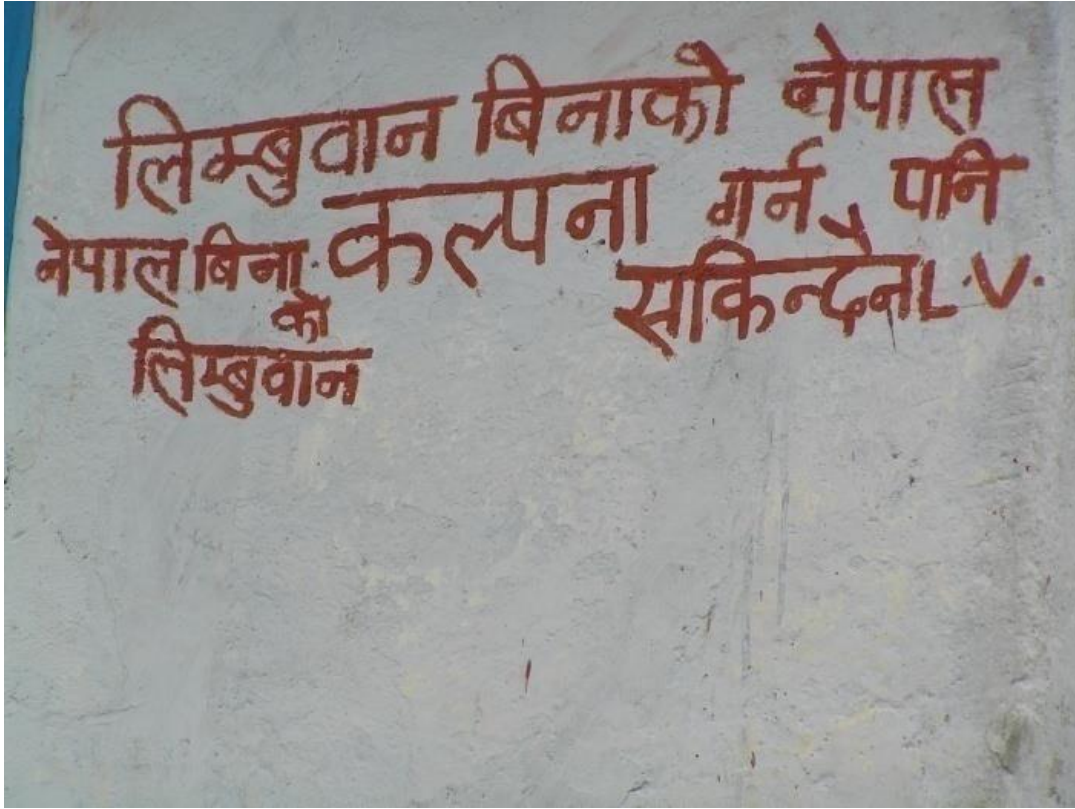 लिम्बुवान बिनाको नेपाल
नेपाल बिना को लिम्बुवान
कल्पना गर्न पनि
सकिन्दैन L.V.